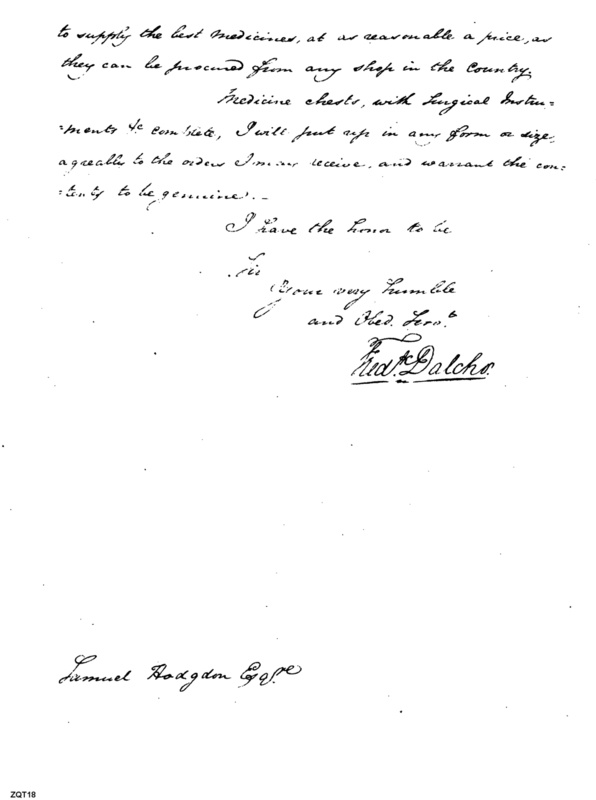 to supply the best medicines, at as reasonable a price, as
they can be procured from any shop in the Country.
Medicine chests, with Surgical Instru=
=ments &c complete, I will put up in any form or size,
agreally to the orders I may receive, and warrant the con=
=tents to be genuine. -
I have the honor to be
Sir
Your very humble
and Obed. Servt
Fredk. Dalcho.
Samuel Hodgdon Esqre
ZQT18